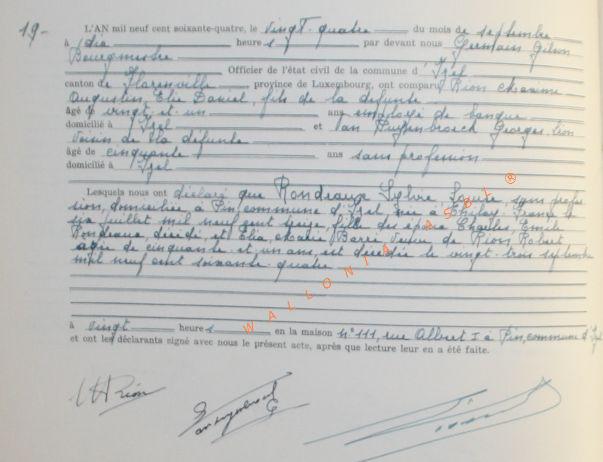 19-
L'AN mil neuf cent soixante-quatre, le vingt-quatre du mois de septembre
à dix heures par devant nous Germain Gilson
Bourgmestre
Officier de l'état civil de la commune d' Izel
canton de Florenville, province de Luxembourg, ont comparu Rion Maxime
Augustin, Elie Daniel, fils de la défunte
âgé de vingt et un ans employé de banque
domicilié à Izel et Van Puyenbroeck Georges Léon
Voisin de la défunte
âgé de cinquante ans sans profession
domicilié à Izel
Lesquels nous ont déclaré que Rondeaux Sylvie Louise, sans profes
sion, domiciliée à Pin, commune d'Izel née à France le
six juillet mil neuf cent treize, fille des époux Charles, Emile
Rondeaux, décédé et Elia, Marie Barré, Veuve de Rion, Robert
agée de cinquante et un ans, est décédée le vingt-trois septembre
mil neuf cent soixante quatre
à vingt heures en la maison N° 111, rue Albert I à Pin, commune d'Izel
et ont les déclarants signé avec nous le présent acte, après que lecture leur en a été faite.
WALLONIA ASBL ®
Rion